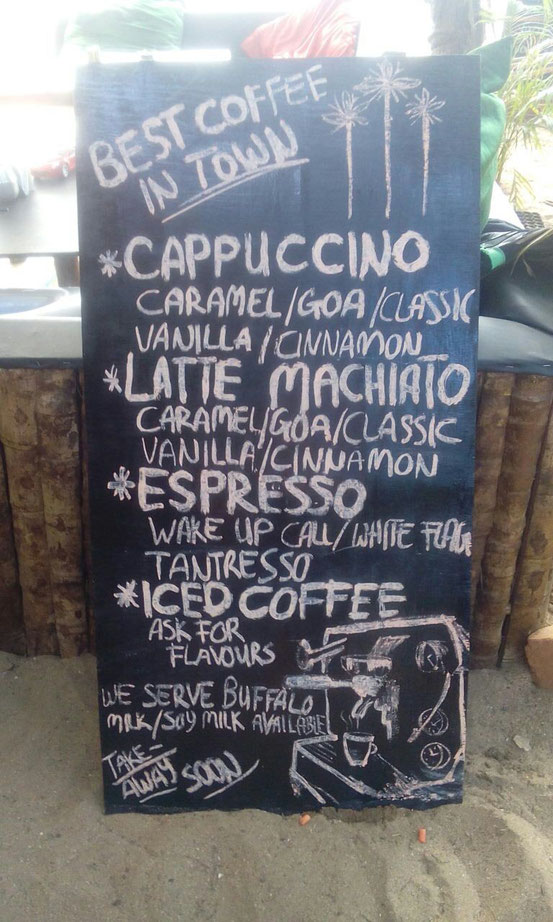 BEST COFFEE
IN TOWN
*CAPPUCCINO
CARAMEL/GOA/CLASSIC
VANILLA/CINNAMON
*LATTE MACHIATO
CARAMEL/GOA/CLASSIC
VANILLA/CINNAMON
*ESPRESSO
WAKE UP CALL/WHITE FLAG
TANTRESSO
*ICED COFFEE
ASK FOR
FLAVOURS
WE SERVE BUFFALO
MILK/SOY MILK AVAILABLE
TAKE-
AWAY SOON